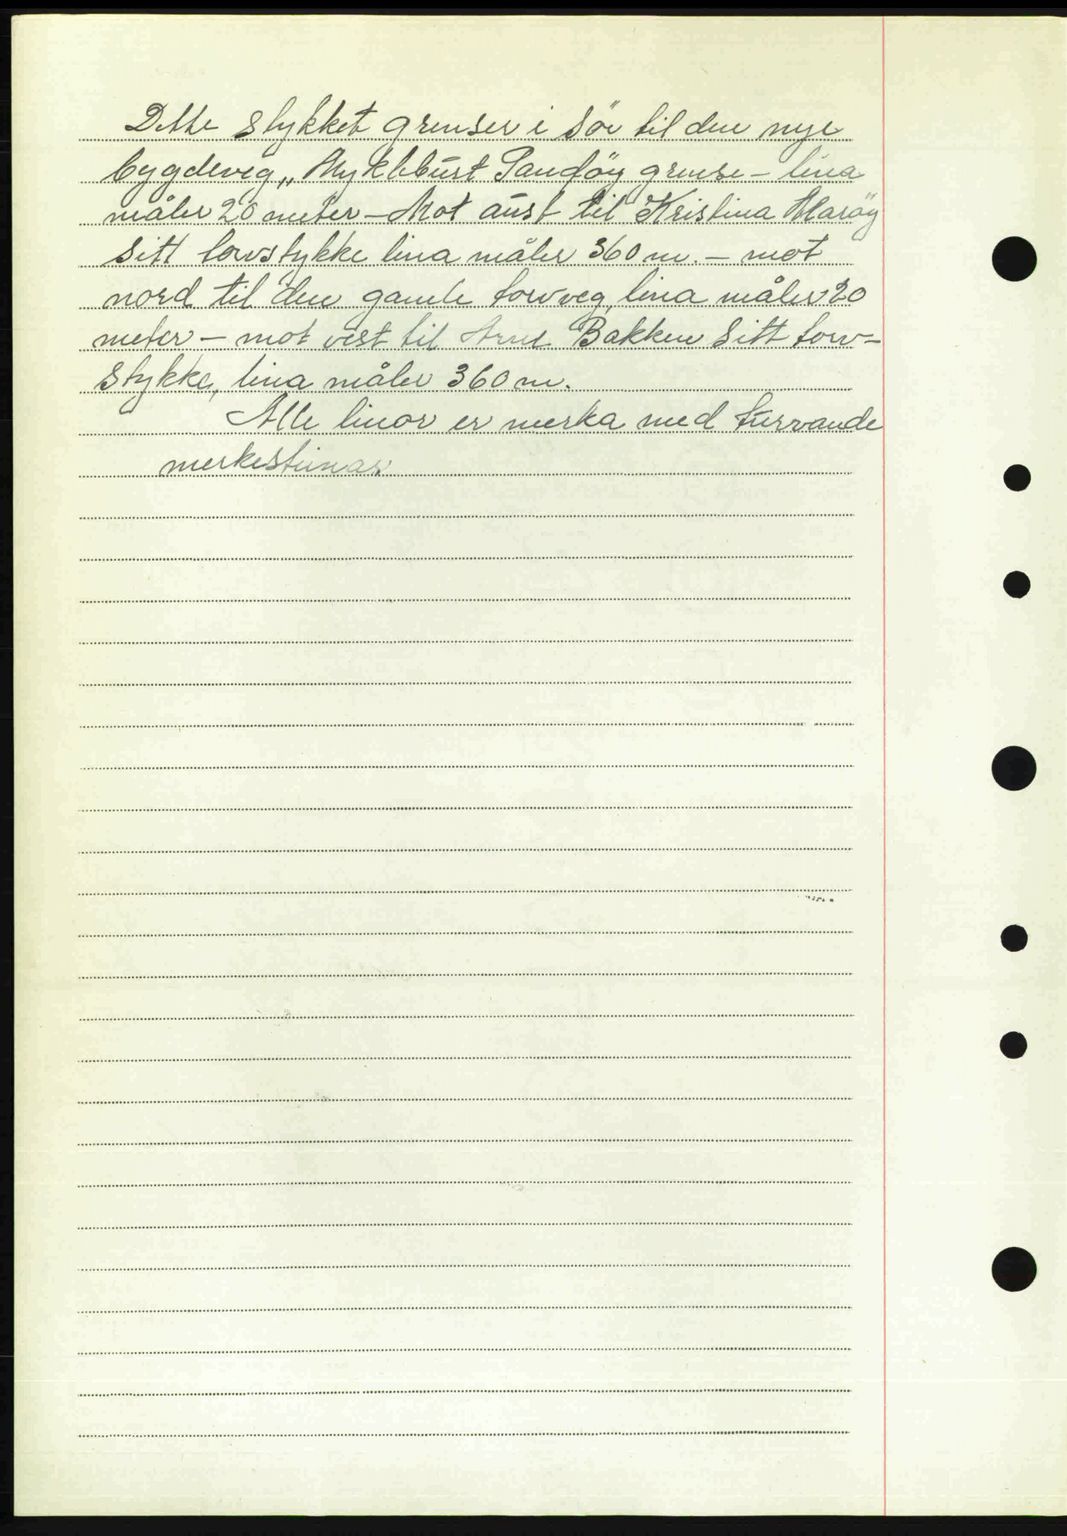 Dette stykket grenser i sör til den nye
bygdeveg „Myklbust Sandöy grense - lina
måler 20 meter - Mot aust til Kristina Maröy
sitt torvstykke lina måler 360 m. - mot
nord til den gamle torvveg, lina måler 20
meter - mot vest til Arne Bakken sitt torv-
stykke, lina måler 360 m.
Alle linor er merka med turvande
merkesteinar.